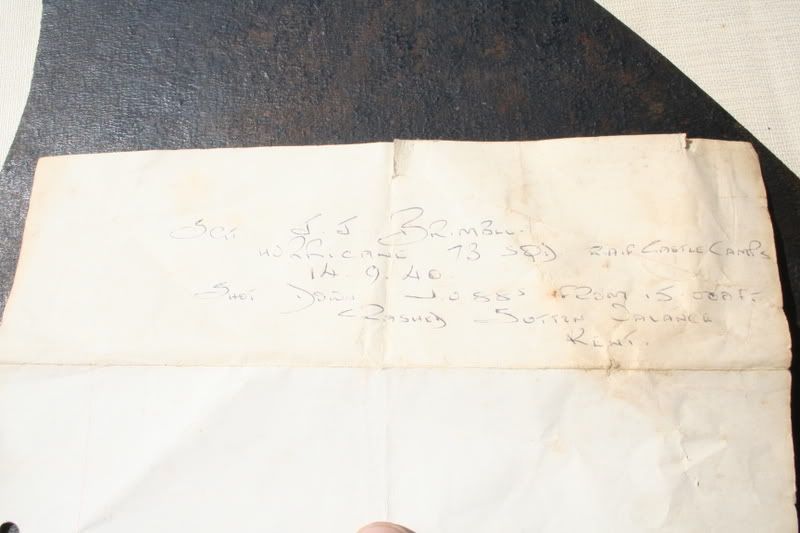 SGT J.J BRIMBLE.
HURRICANE 73 SQD R.A.F CASTLE CAMPS
14.9.40.
SHOT DOWN FROM 15000 FT.
CRASHED SUTTON VALANCE
KENT.